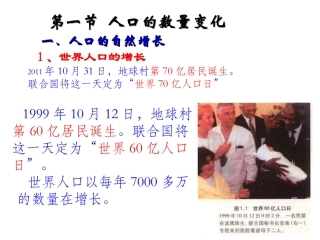 第一节 人口的数量变化
一、人口的自然增长
1、世界人口的增长
2011 年 10 月 31 日，地球村第 70 亿居民诞生。
联合国将这一天定为“世界 70 亿人口日”
1999 年 10 月 12 日，地球村
第 60 亿居民诞生。联合国将
这一天定为“世界 60 亿人口
日”。
世界人口以每年 7000 多万
的数量在增长。
图1.1 世界60亿人口日
1999年10月12日0时2分，一名男婴
在波黑降生，联合国秘书长安南(右一)
专程来到医院看望母子二人。